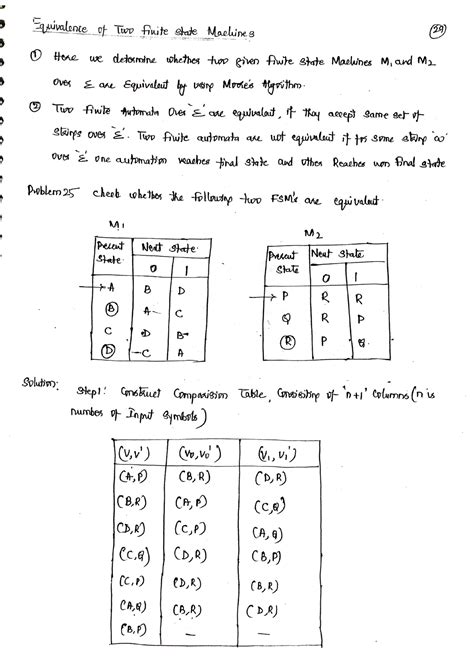 Equivalence of Two finite state Machines
(29)
① Here we determine whether two given finite state Machines M1 and M2
over Σ are Equivalent by using Moore's Algorithm.
② Two finite Automata Over 'Σ' are equivalent, if they accept same set of
Strings over 'Σ'. Two finite automata are not equivalent if for some string 'ω'
over 'Σ' one automation reaches final state and other Reaches non final state
Problem 25 check whether the following two FSM's are equivalent.
M1
M2
Present State Next State
0 1
→ A B D
B A C
C D B
D C A
Present State Next State
0 1
→ P R R
Q R P
R P Q
Solution: Step1: Construct Comparision Table, Consisting of 'n+1' columns (n is
number of Input symbols)
(V, V') (V0, V0') (V1, V1')
(A, P) (B, R) (D, R)
(B, R) (A, P) (C, Q)
(D, R) (C, P) (A, Q)
(C, Q) (D, R) (B, P)
(C, P) (D, R) (B, R)
(A, Q) (B, R) (D, R)
(B, P) — —